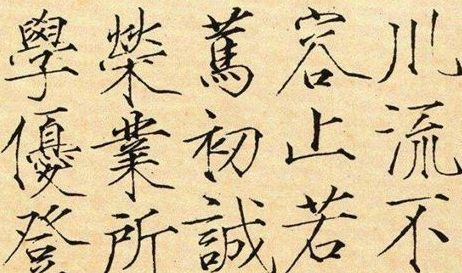 川流不
容止若
篤初誠
榮業所
學優登